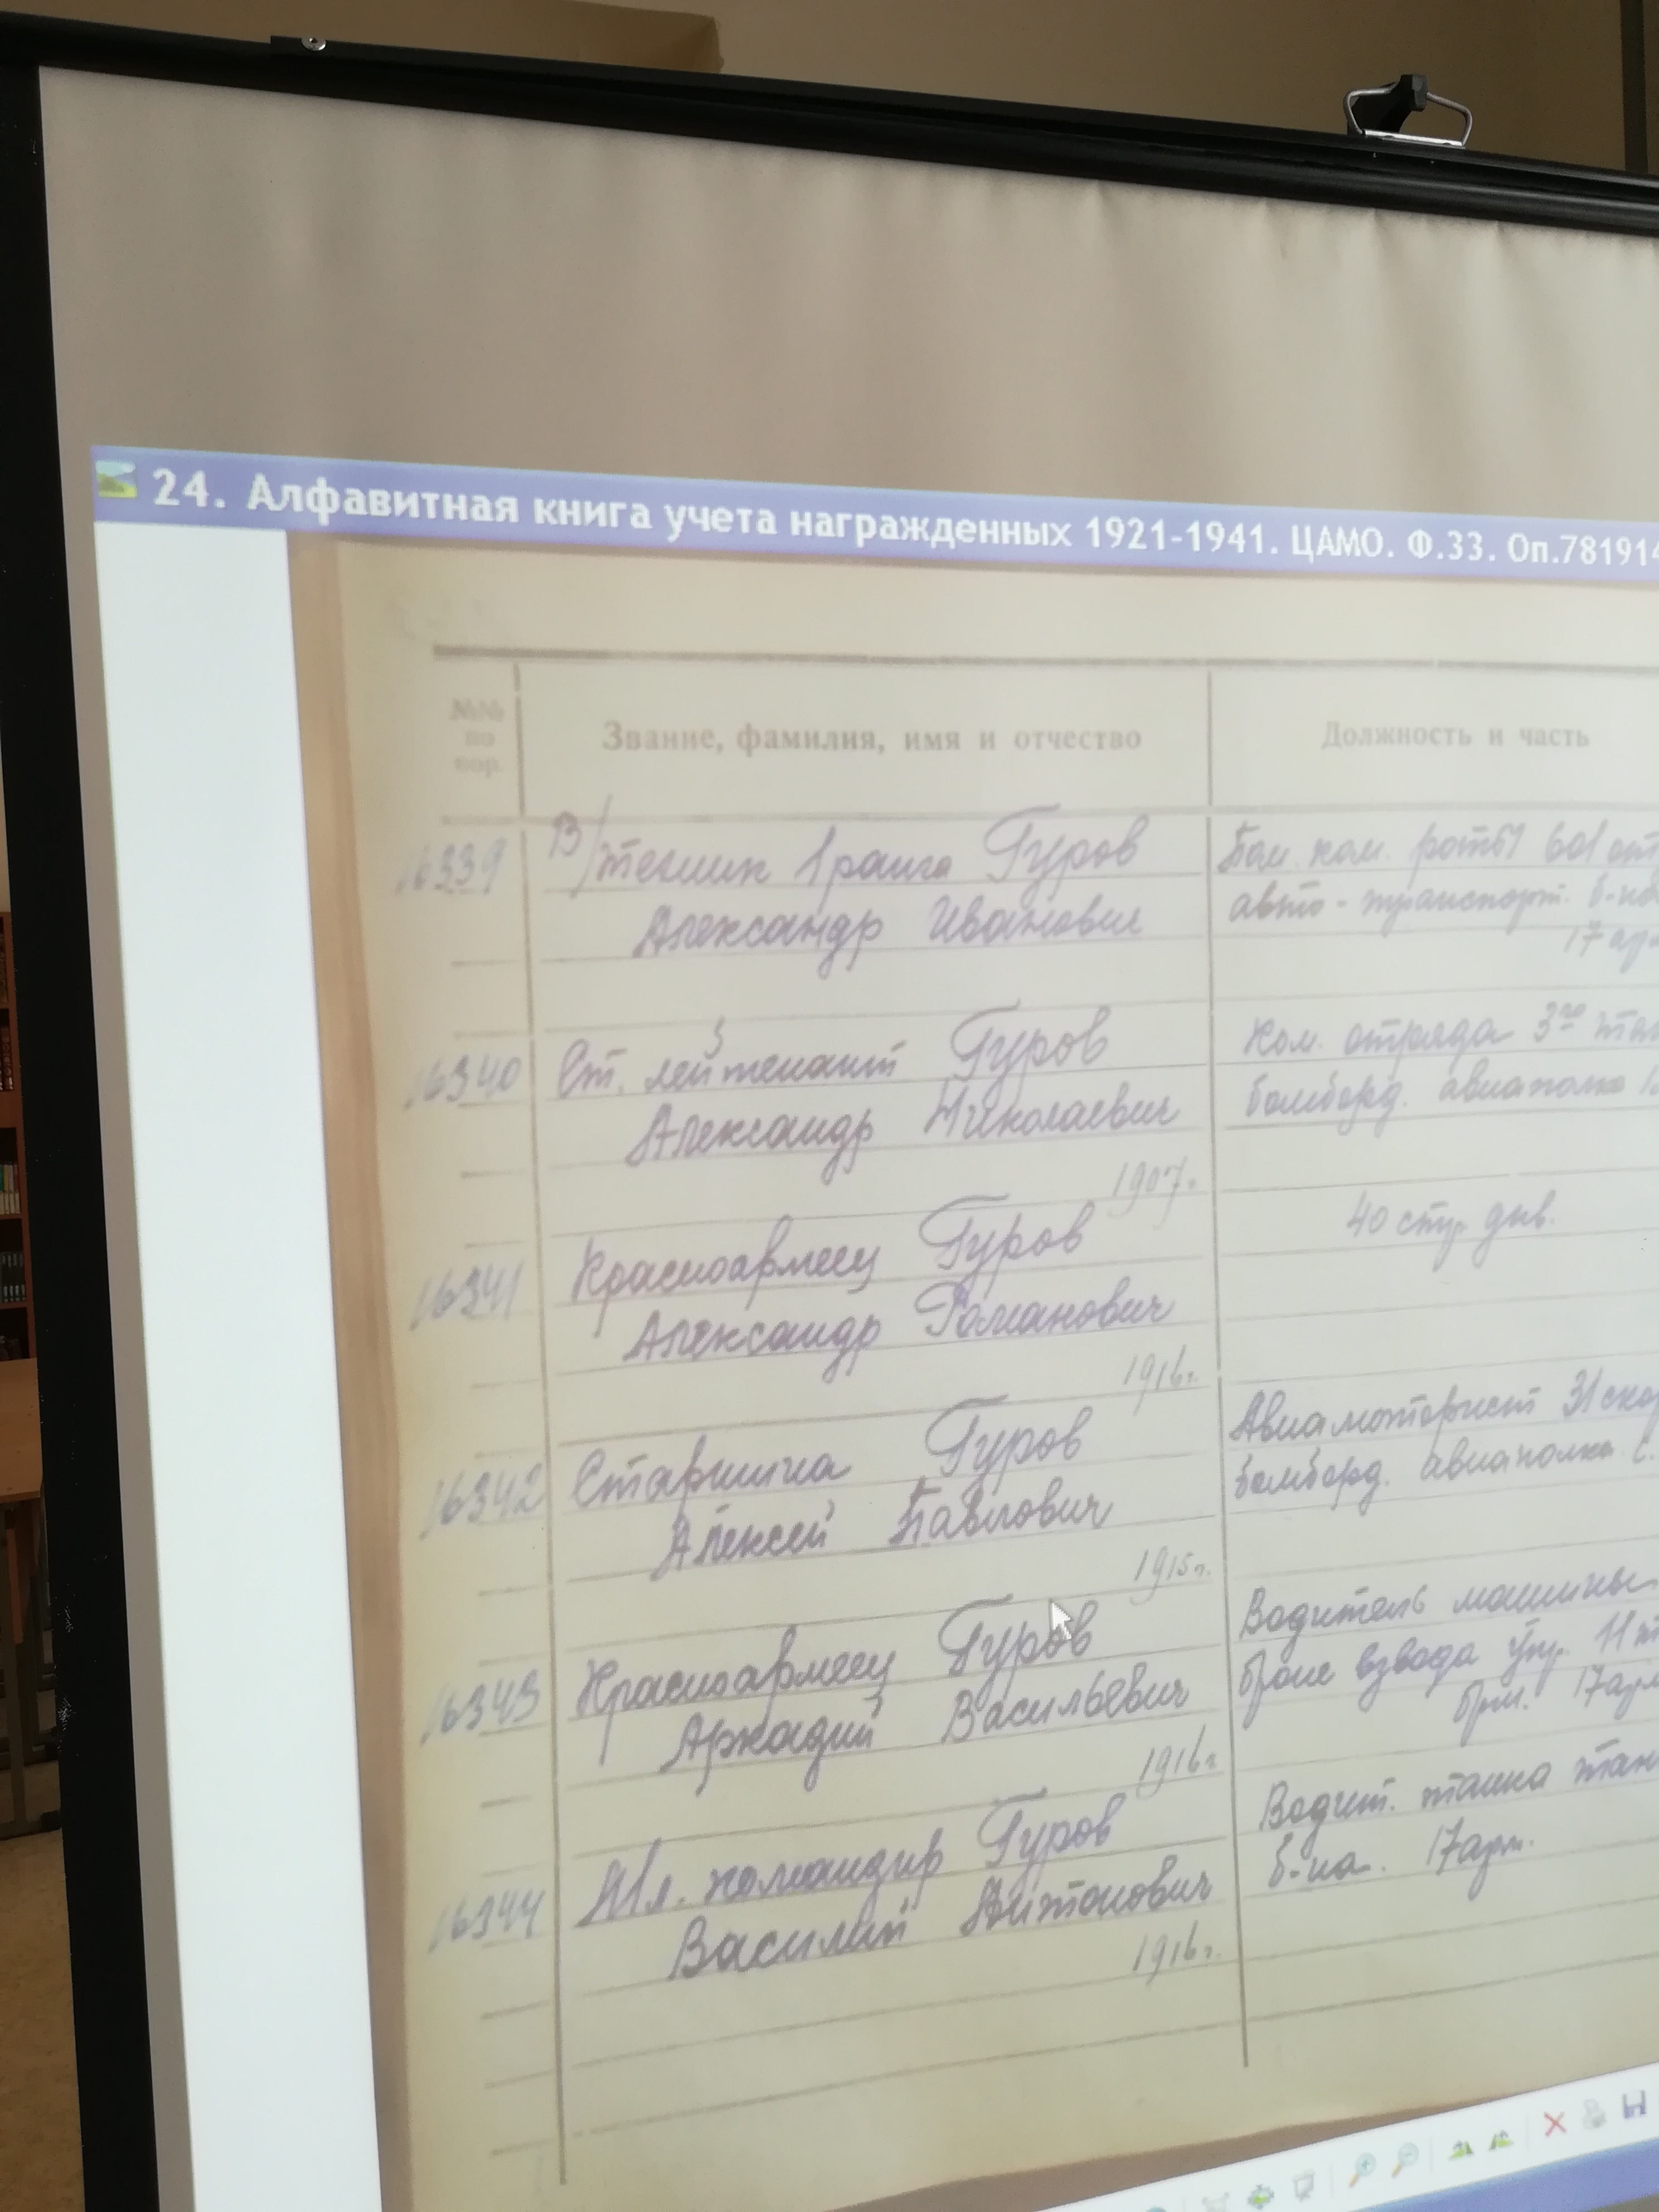 24. Алфавитная книга учета награжденных 1921-1941. ЦАМО. Ф.33. Оп.781914
№№ по пор.
Звание, фамилия, имя и отчество
Должность и часть
16339
В/техник 1 ранга Гуров
Александр Иванович
Пом. ком. роты 601 от
авто-транспорт. б-на
17 ар
16340
Ст. лейтенант Гуров
Александр Николаевич
1907г.
Ком. отряда 3го
бомбард. авиаполка
16341
Красноармеец Гуров
Александр Романович
1916г.
40 стр. див.
16342
Старшина Гуров
Алексей Павлович
1915г.
Авиамоторист 31 скор
бомбард. авиаполка с.
16343
Красноармеец Гуров
Аркадий Васильевич
1916г
Водитель машины
броне взвода упр. 11
бри. 17 арм
16344
Мл. командир Гуров
Василий Антонович
1916г.
Водит. танка тан
б-на. 17 арм.